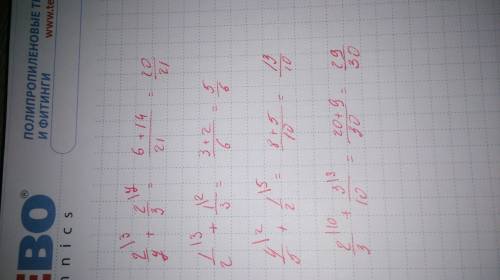 ПОЛИПРОПИЛЕНОВЫЕ ТР
И ФИТИНГИ
www.te
BO
hnics
2/7\3 + 2/3\7 = 6+14/21 = 20/21
1/2\3 + 1/3\2 = 3+2/6 = 5/6
4/5\2 + 1/2\5 = 8+5/10 = 13/10
2/3\10 + 3/10\3 = 20+9/30 = 29/30